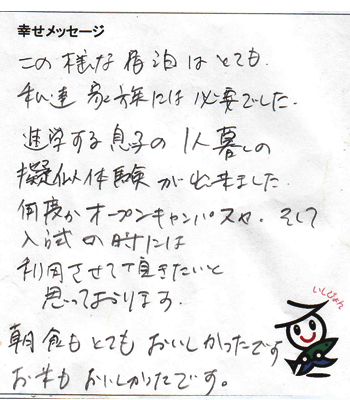 幸せメッセージ
この様な宿泊はとても
私達家族には必要でした.
進学する息子の1人暮しの
擬似体験が出来ました.
何度かオープンキャンパスや、そして
入試の時には
利用させて頂きたいと
思っております.
朝食もとてもおいしかったです
お米もおいしかったです。
いしじゃん